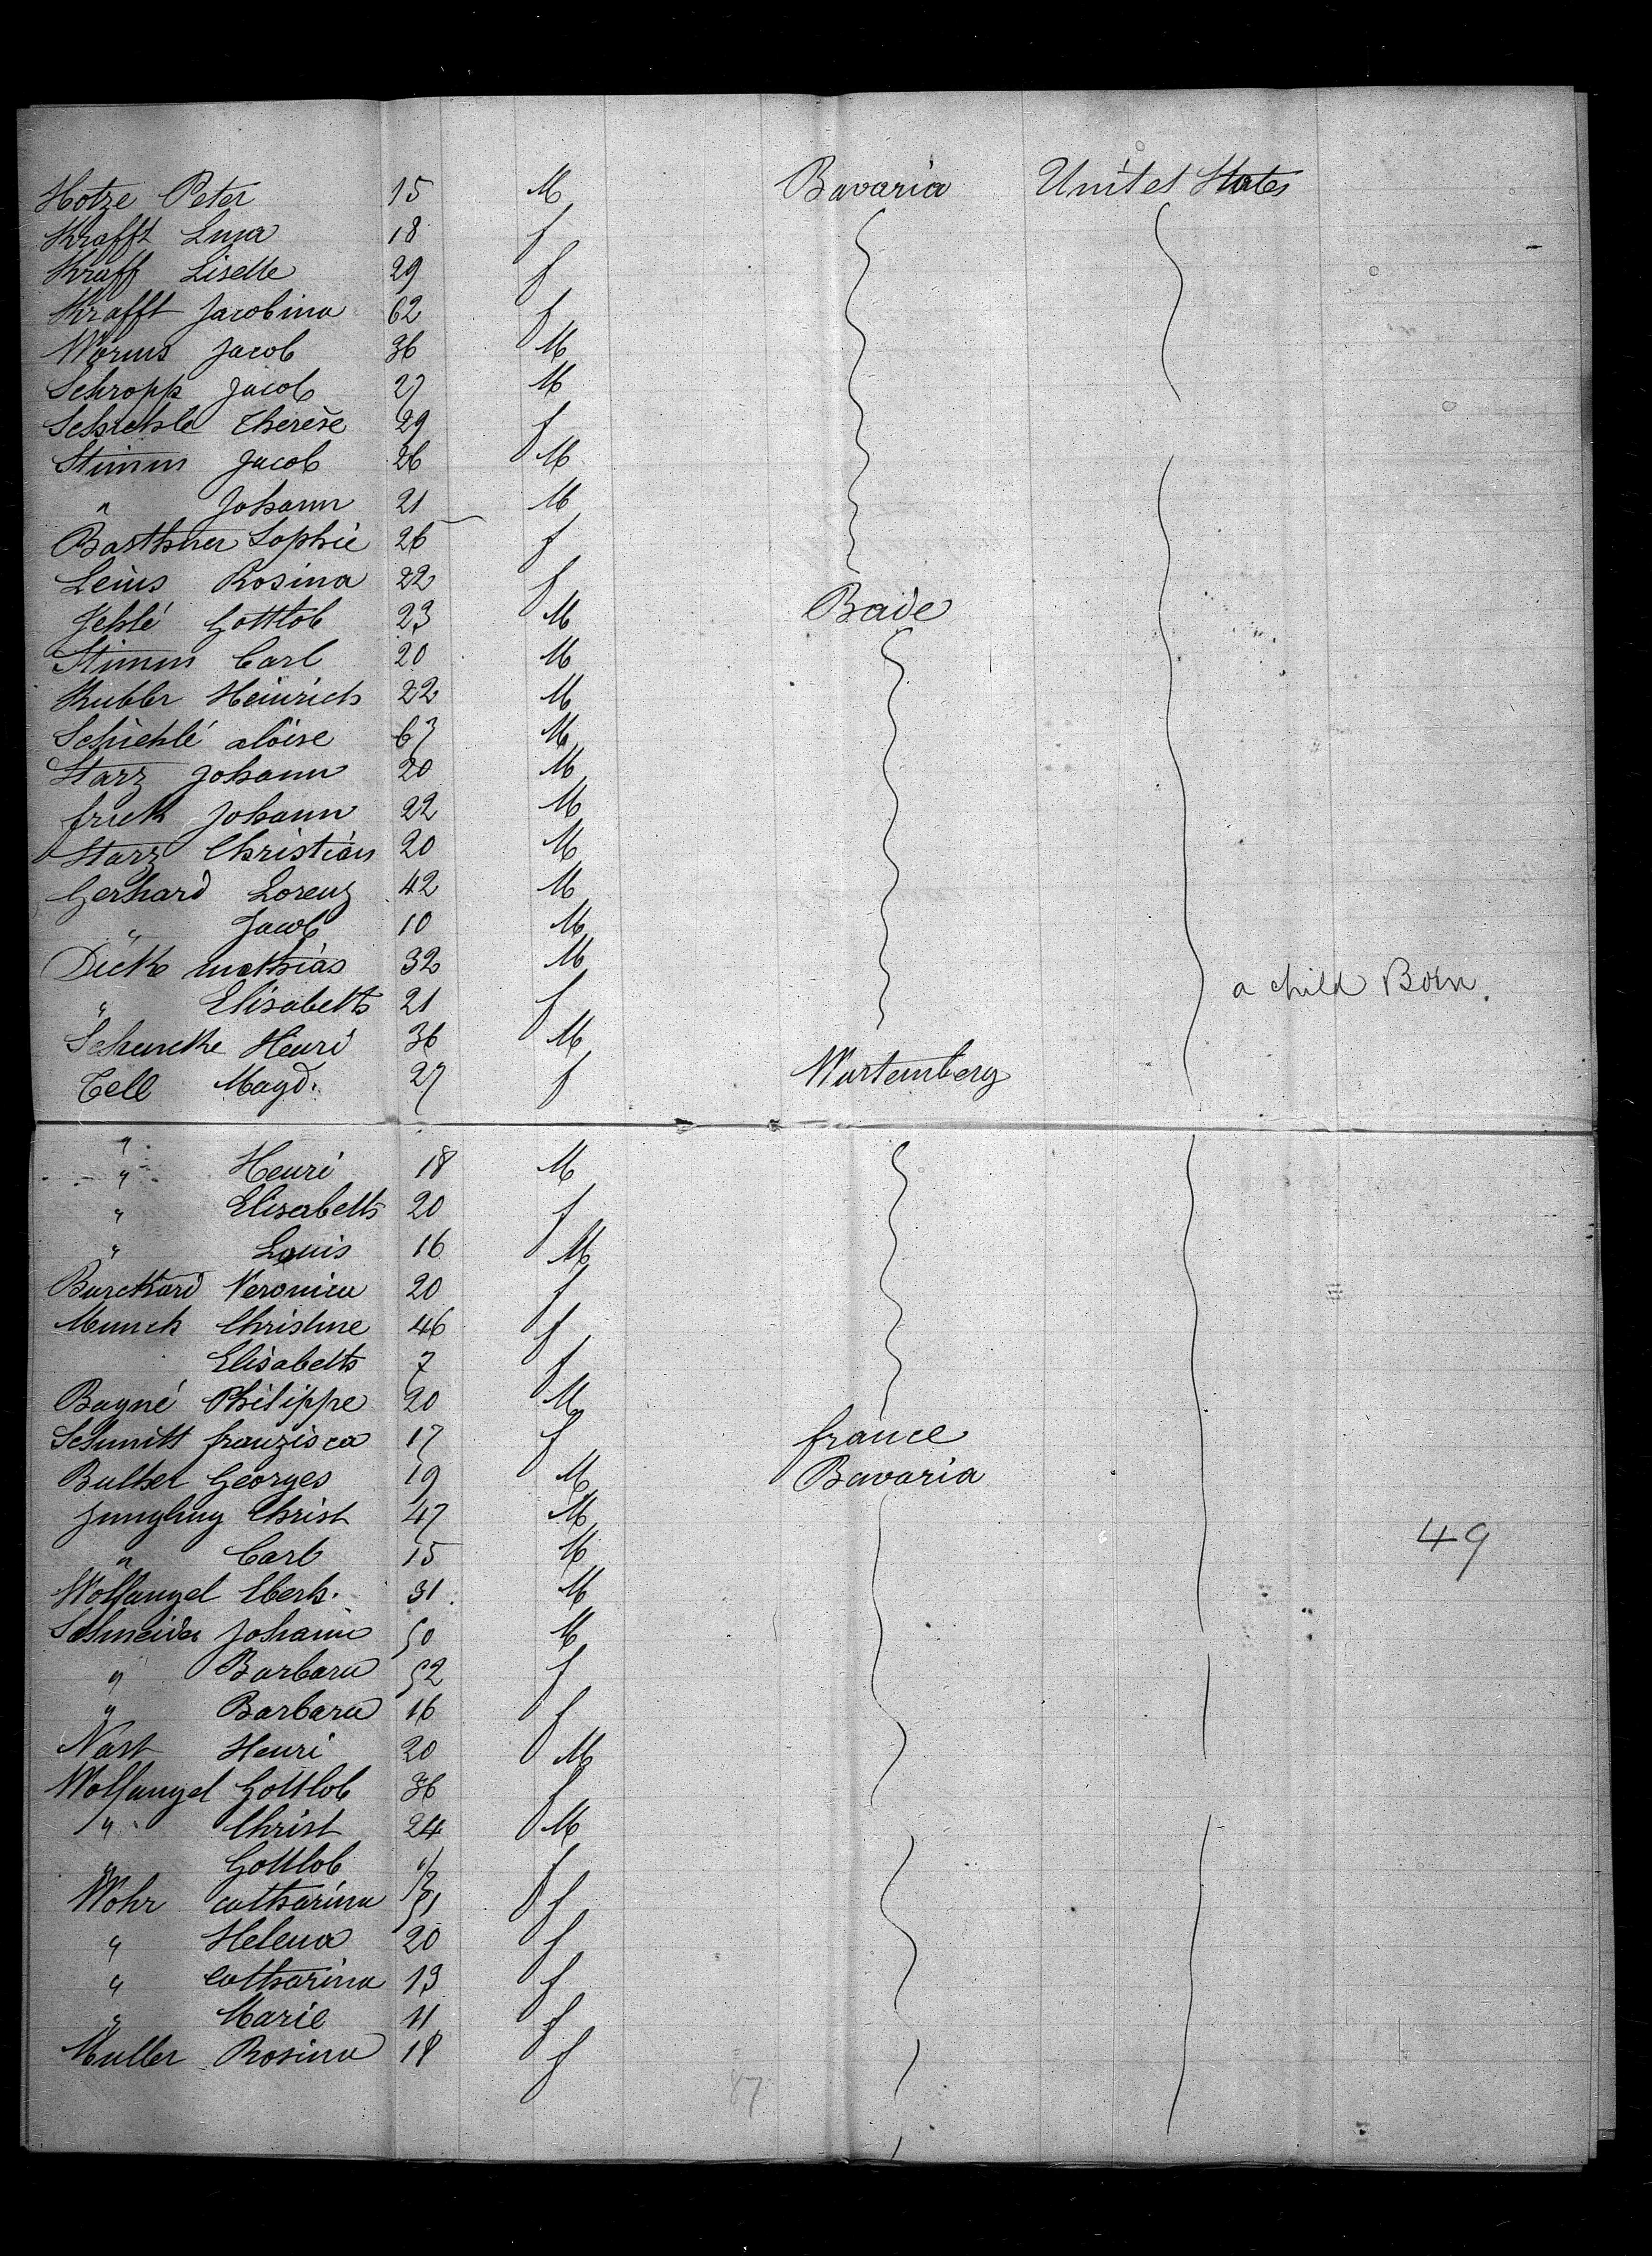 Hotze Peter 15 M Bavaria Unitet States
Krafft Lina 18 f
Kraff Lisette 29 f
Krafft Jacobina 62 f
Worms Jacob 36 M
Schropp Jacob 27 M
Schiehle Therese 29 f
Stimm Jacob 26 M
" Johann 21 M
Barthner Sophie 26 f
Leins Rosina 22 f
Jehlé Gottlob 23 M Bade
Stimm Carl 20 M
Kubler Heinrich 22 M
Schiehlé aloise 67 M
Starz Johann 20 M
frick Johann 22 M
Starz Christian 20 M
Gerhard Lorenz 42 M
" Jacob 10 M
Dick mathias 32 M
" Elisabeth 21 f a child Born.
Schencke Henri 36 M
Cell Magd. 27 f Wurtemberg
"
" Henri 18 M
" Elisabeth 20 f
" Louis 16 M
Burckard Veronica 20 f
Munch Christine 46 f
Elisabeth 7 f
Bayné Philippe 20 M
Schmitt franzisca 17 f france
Bulher Georges 19 M Bavaria
Jungling Christ 47 M
" Carl 15 M 49
Wolfangel Eberh. 31. M
Schneider Johann 50 M
" Barbara 52 f
" Barbara 16 f
Nast Henri 20 M
Wolfangel Gottlob 36 f
" Christ 24 M
" Gottlob 1/2 f
Wohr catharina 51 f
" Helena 20 f
" Catharina 13 f
" Marie 11 f
Muller Rosina 18 f
87